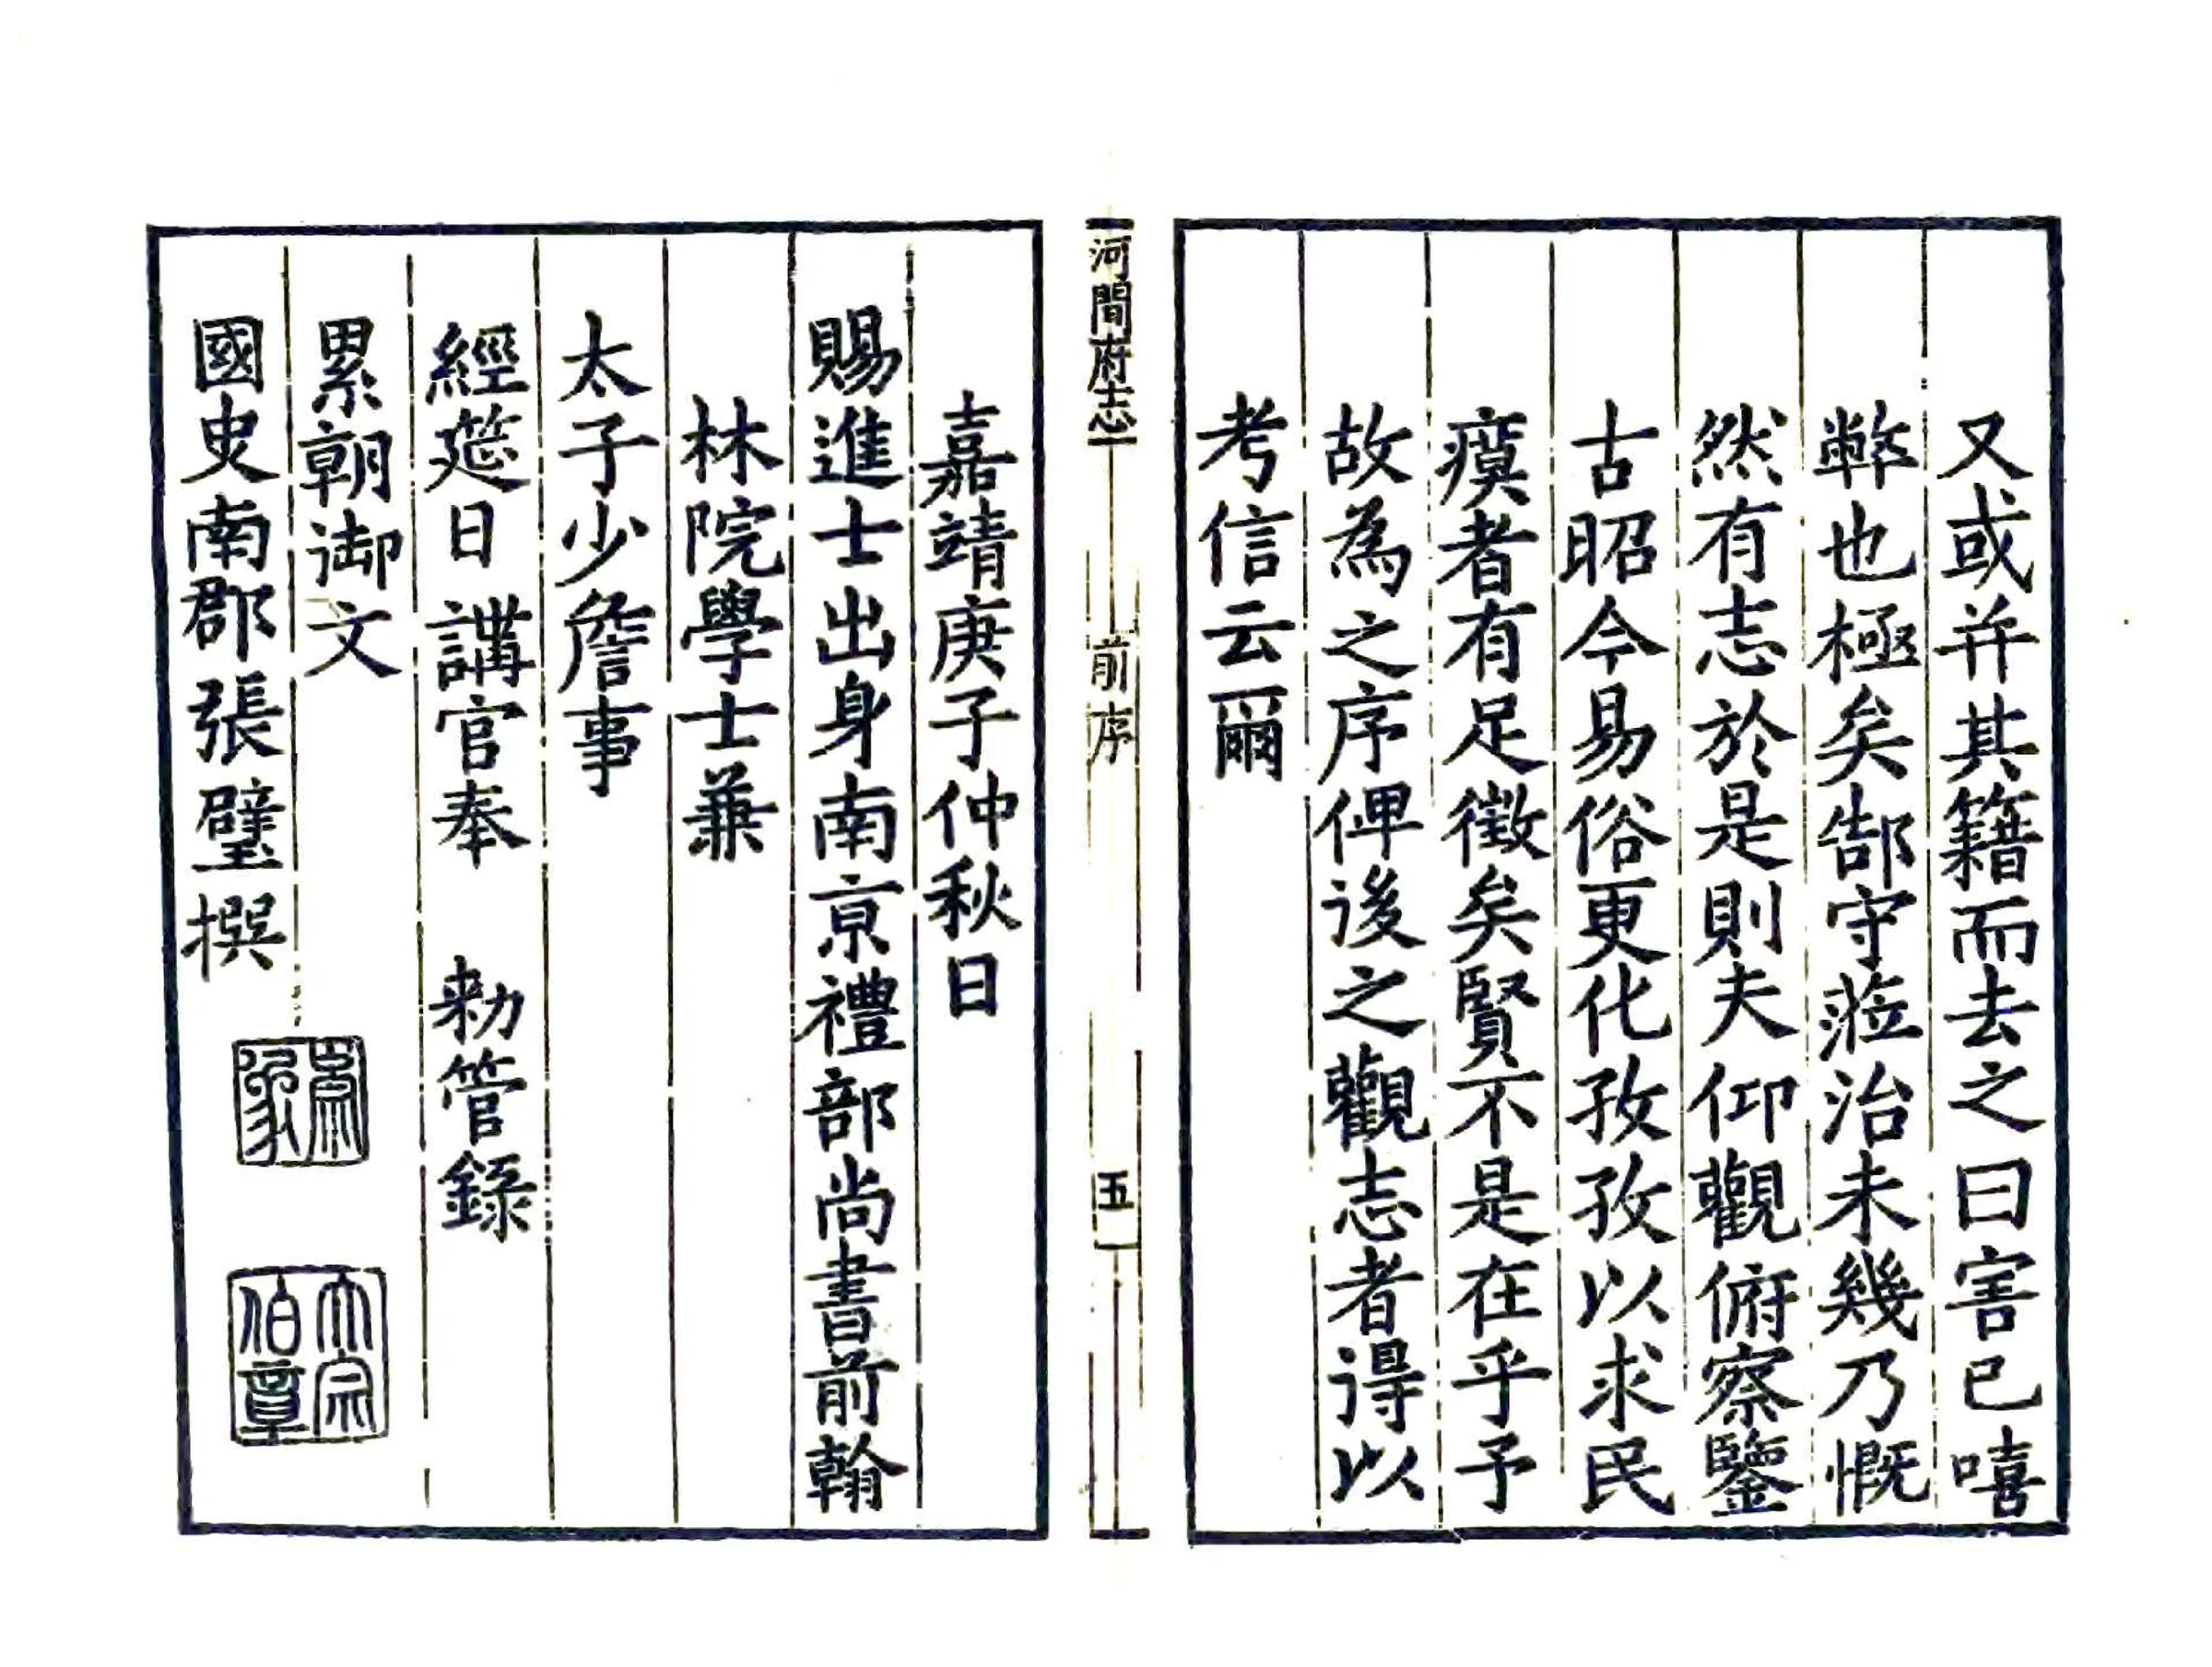 又或并其籍而去之曰害已嘻
弊也極矣郜守蒞治未幾乃慨
然有志於是則夫仰觀俯察鑒
古昭今易俗更化孜孜以求民
瘼者有足徵矣賢不是在乎予
故為之序俾後之觀志者得以
考信云爾
河間府志
前序
五
嘉靖庚子仲秋日
賜進士出身南京禮部尚書前翰
林院學士兼
太子少詹事
經筵日講官奉 勑管錄
累朝御文
國史南郡張璧撰
大宗伯章